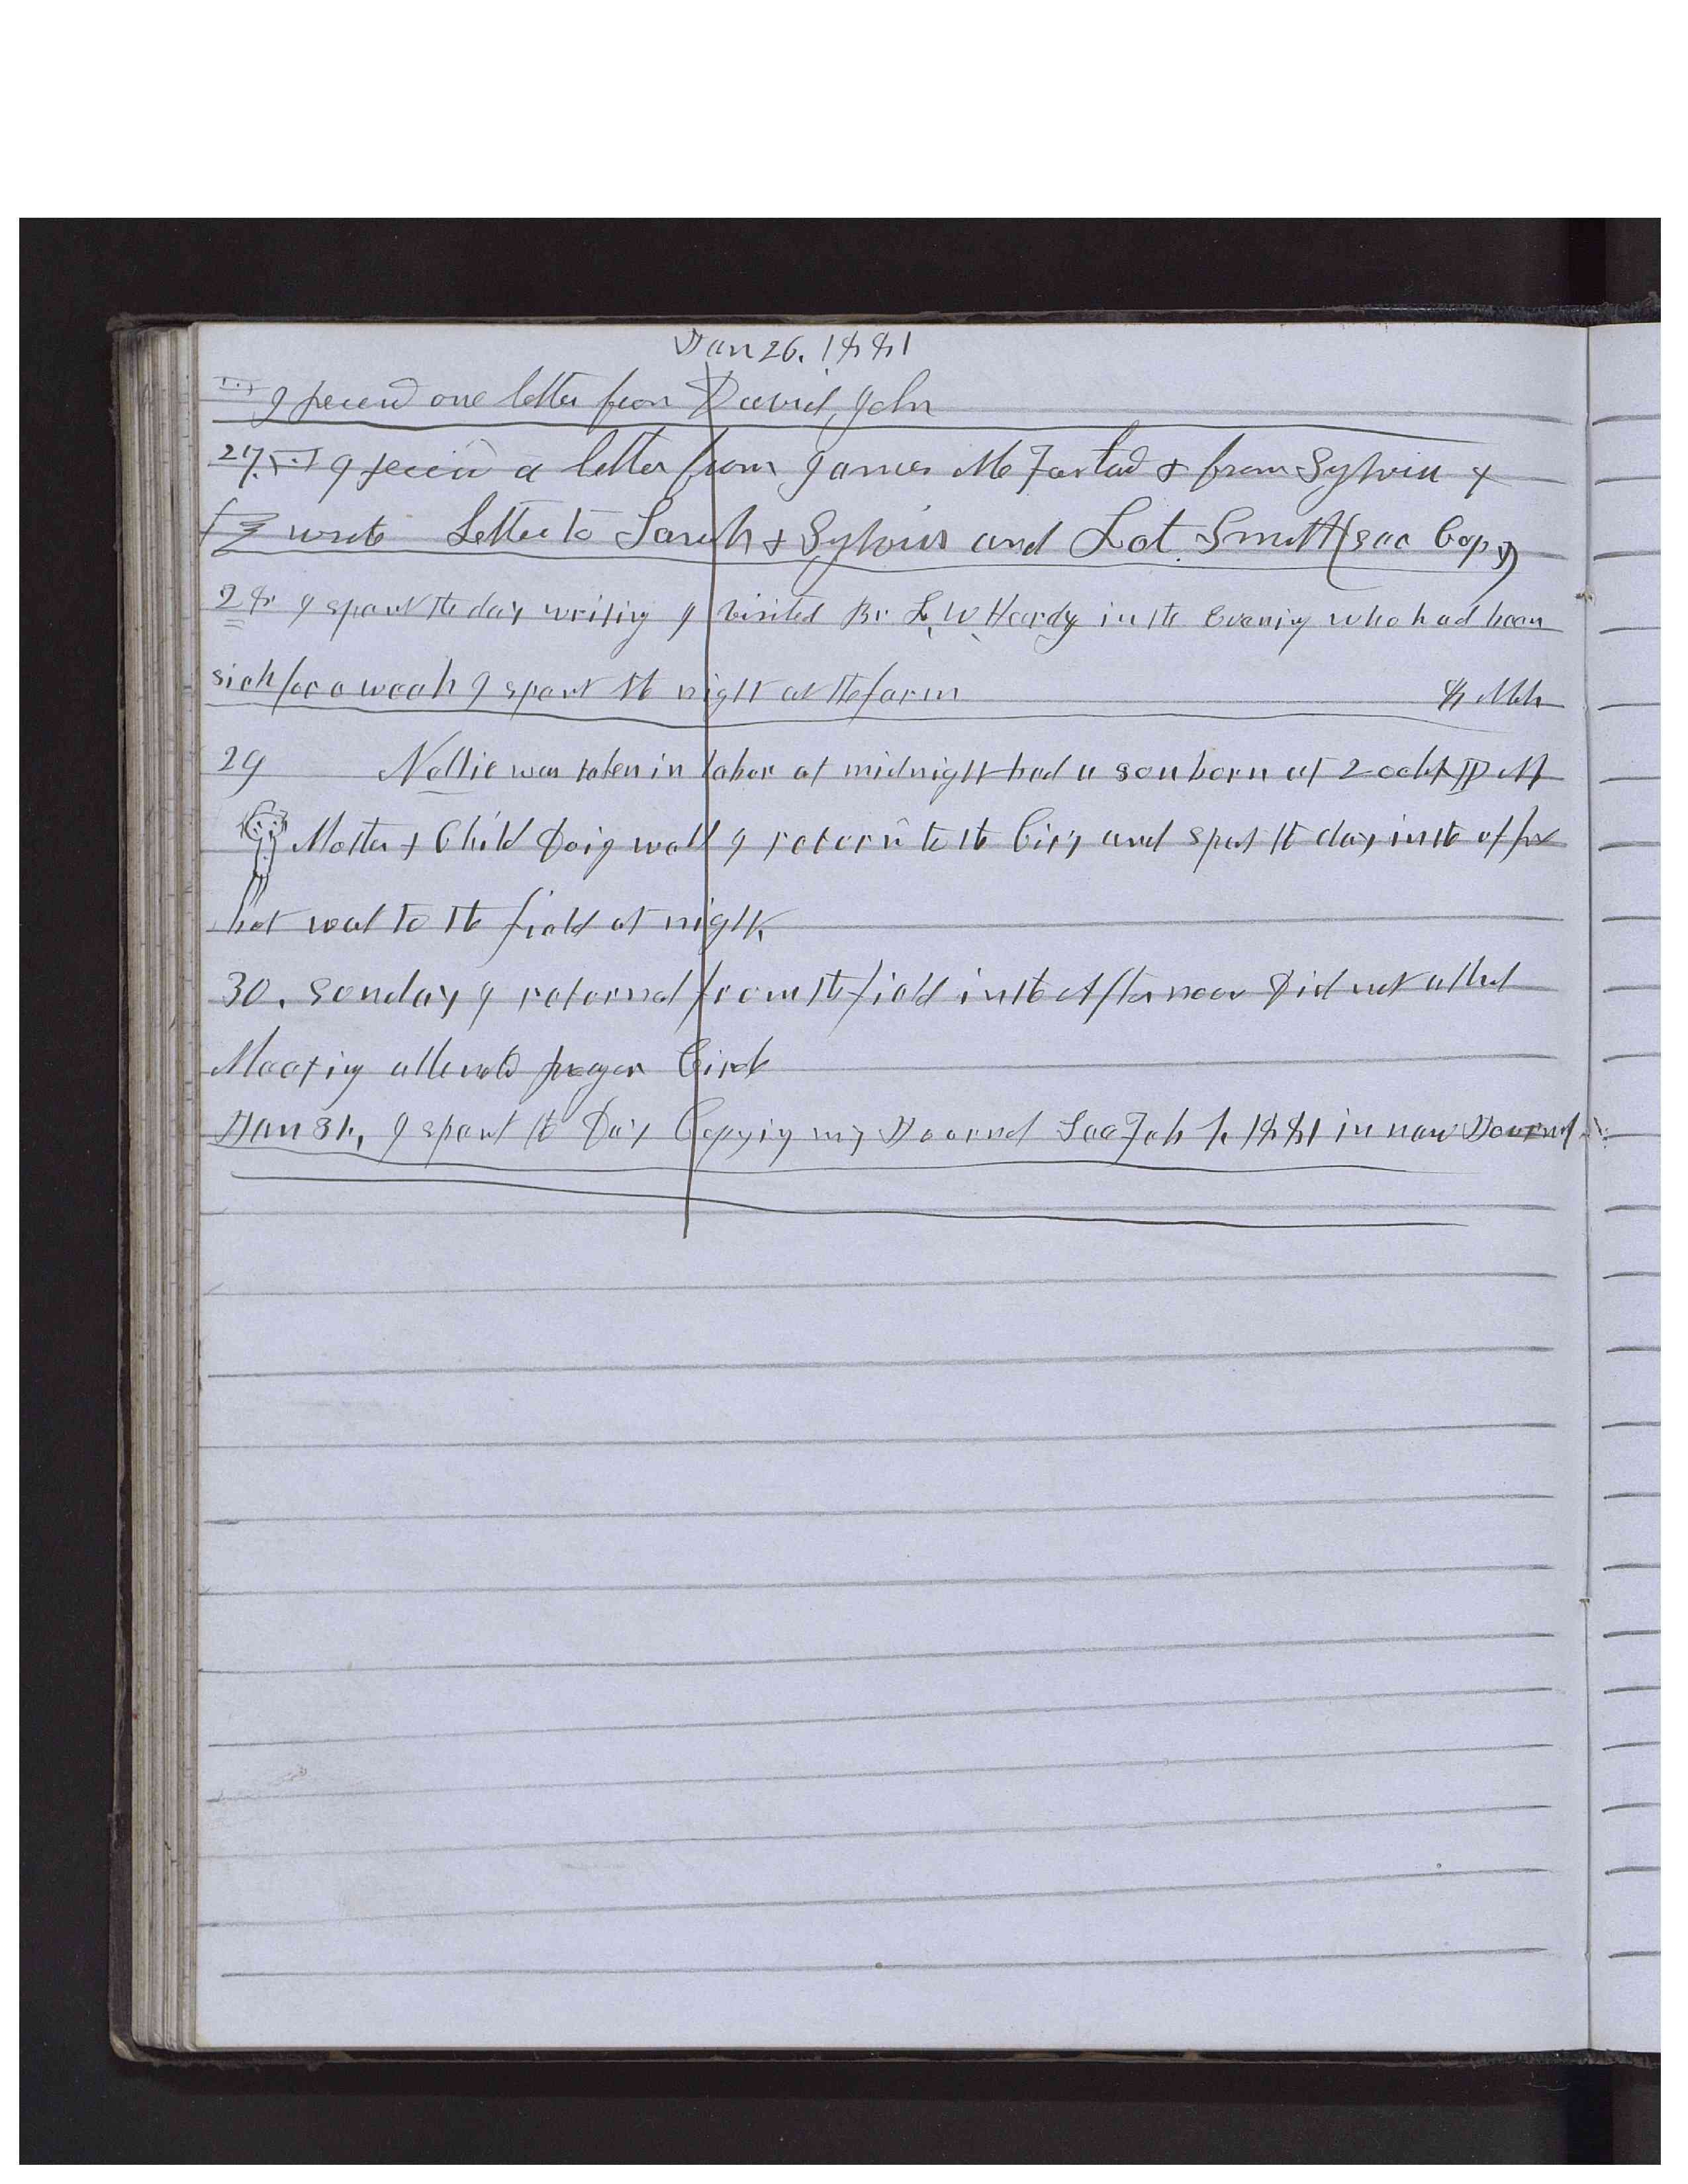 Jan 26. 1881
I receivd one letter from David John
27. I receivd a letter from James McFarlad & from Sylvia &
I wrote Letter to Sarah & Sylvia and Lot Smith (see Copy)
28 I spent the day writing I visited Br L. W Hardy in the Evening who had been
sick for a week I spent the night at the farm 8 Mls
29 Nellie was taken in labor at midnight had a son born at 2 oclk P M
Mother & Child doing well I returnd to the City and spent the day in the office
but went to the field at night.
30. Sunday I returned from the field in the Afternoon Did not attend
Meeting attended prayer Circle
Jan 31, I spent the Day Copying my Journal See Feb 1. 1881 in new Journal